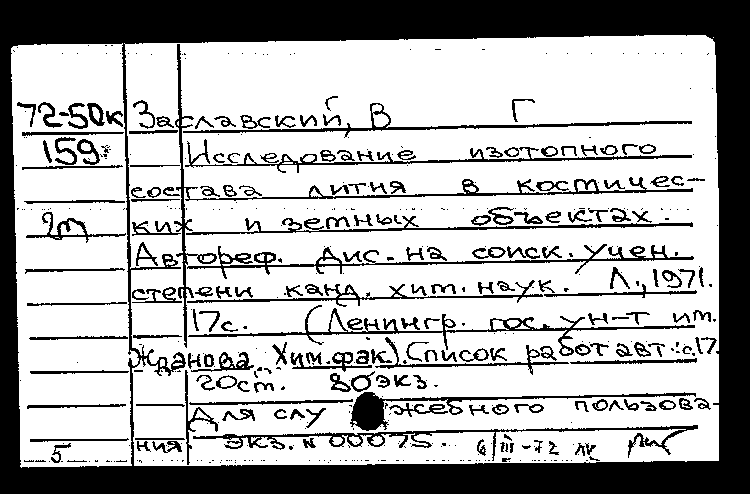 72-50к Заславский, В Г
159 Исследование изотопного
состава лития в костичес-
2т ких и земных объектах.
Автореф. Дис. на соиск. учен.
степени канд. хим. наук. Л., 1971.
17с. (Ленингр. гос. ун-т им.
Жданова. Хим.фак.). Список работ авт.: с.17.
20ст. 80экз.
Для слу жебного пользова-
5 ния. экз. N 00075. 6/III-72